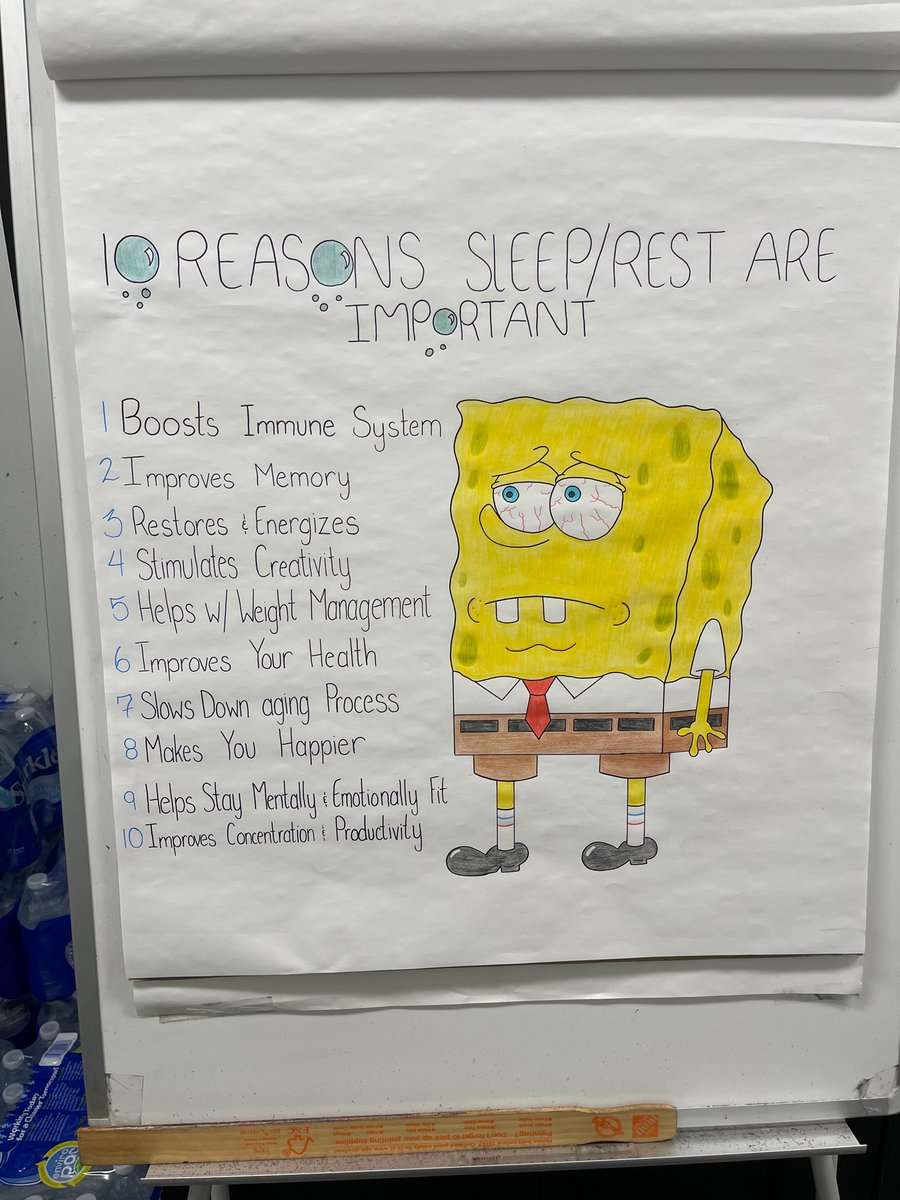 10 REASONS SLEEP/REST ARE
IMPORTANT
1 Boosts Immune System
2 Improves Memory
3 Restores & Energizes
4 Stimulates Creativity
5 Helps w/ Weight Management
6 Improves Your Health
7 Slows Down aging Process
8 Makes You Happier
9 Helps Stay Mentally & Emotionally Fit
10 Improves Concentration & Productivity
Painting?
Don't forget to pick up your painting supplies
FSC
100%